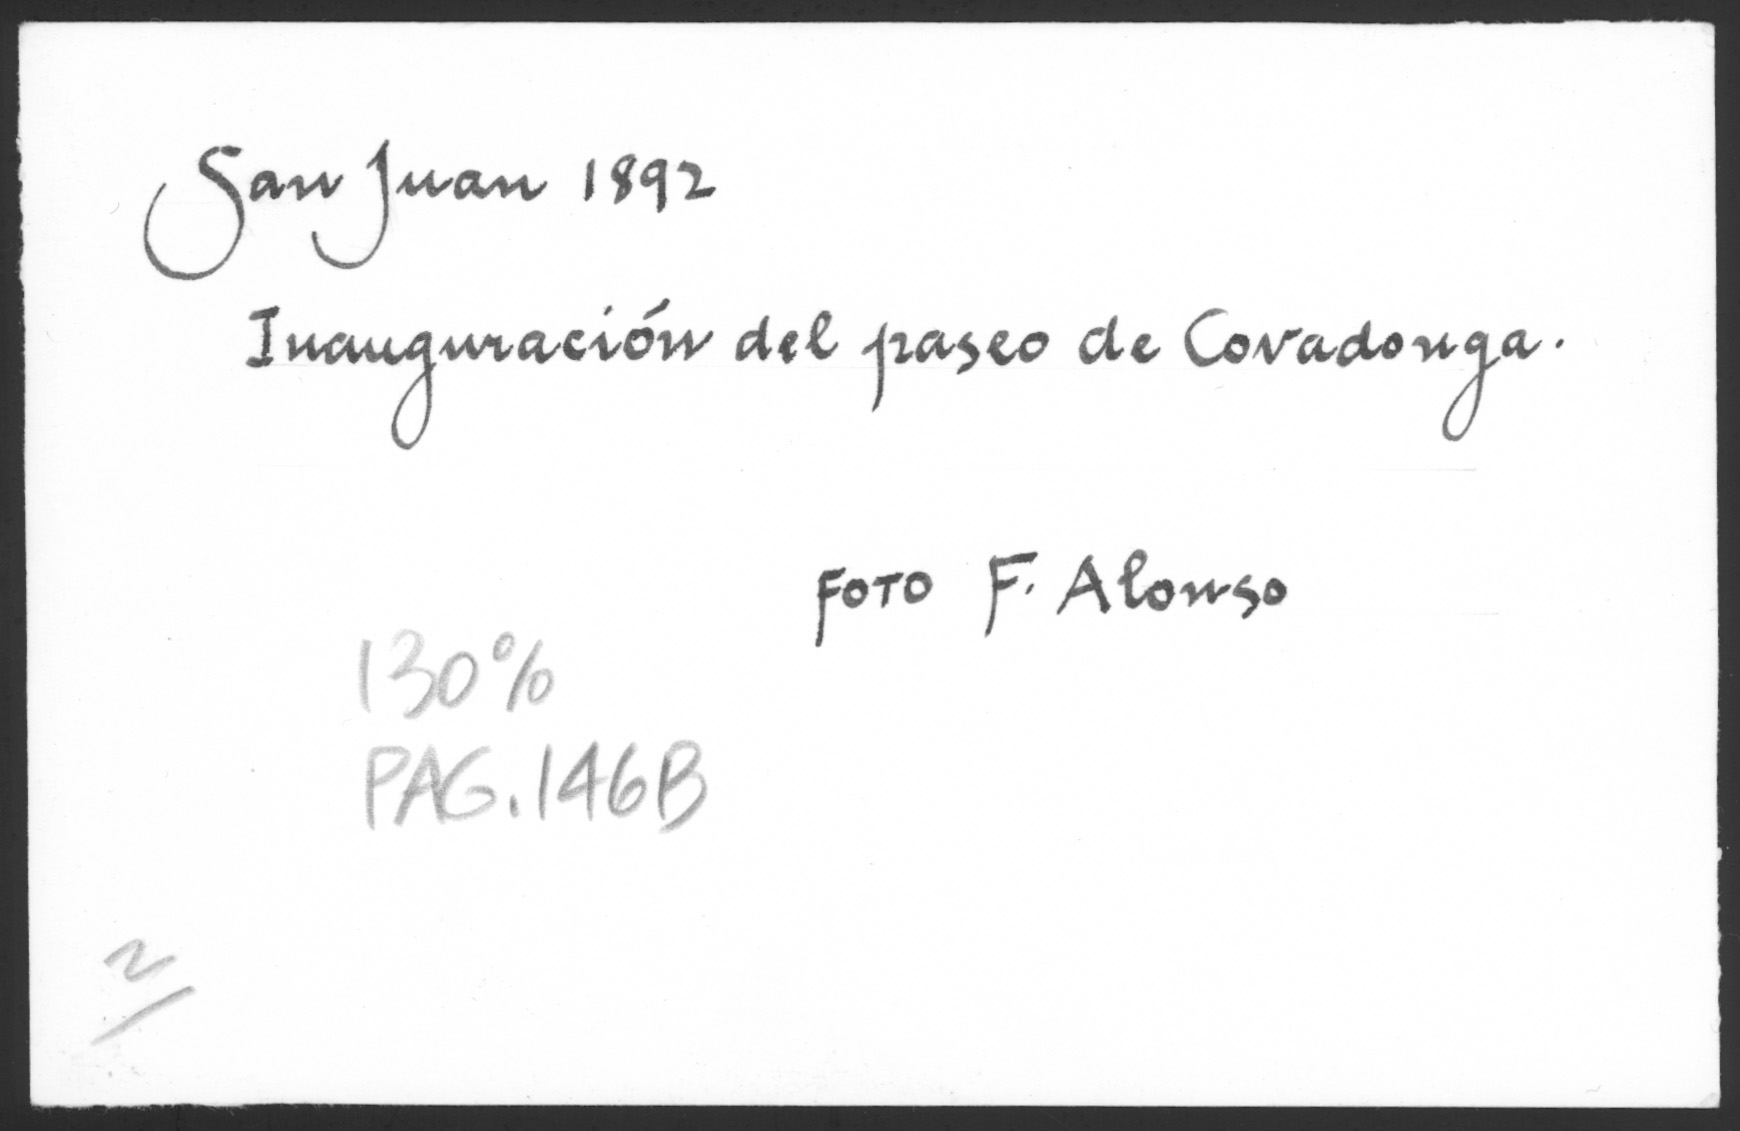 San Juan 1892
Inauguración del paseo de Covadonga.
FOTO F. Alonso
130%
PAG. 146B
2